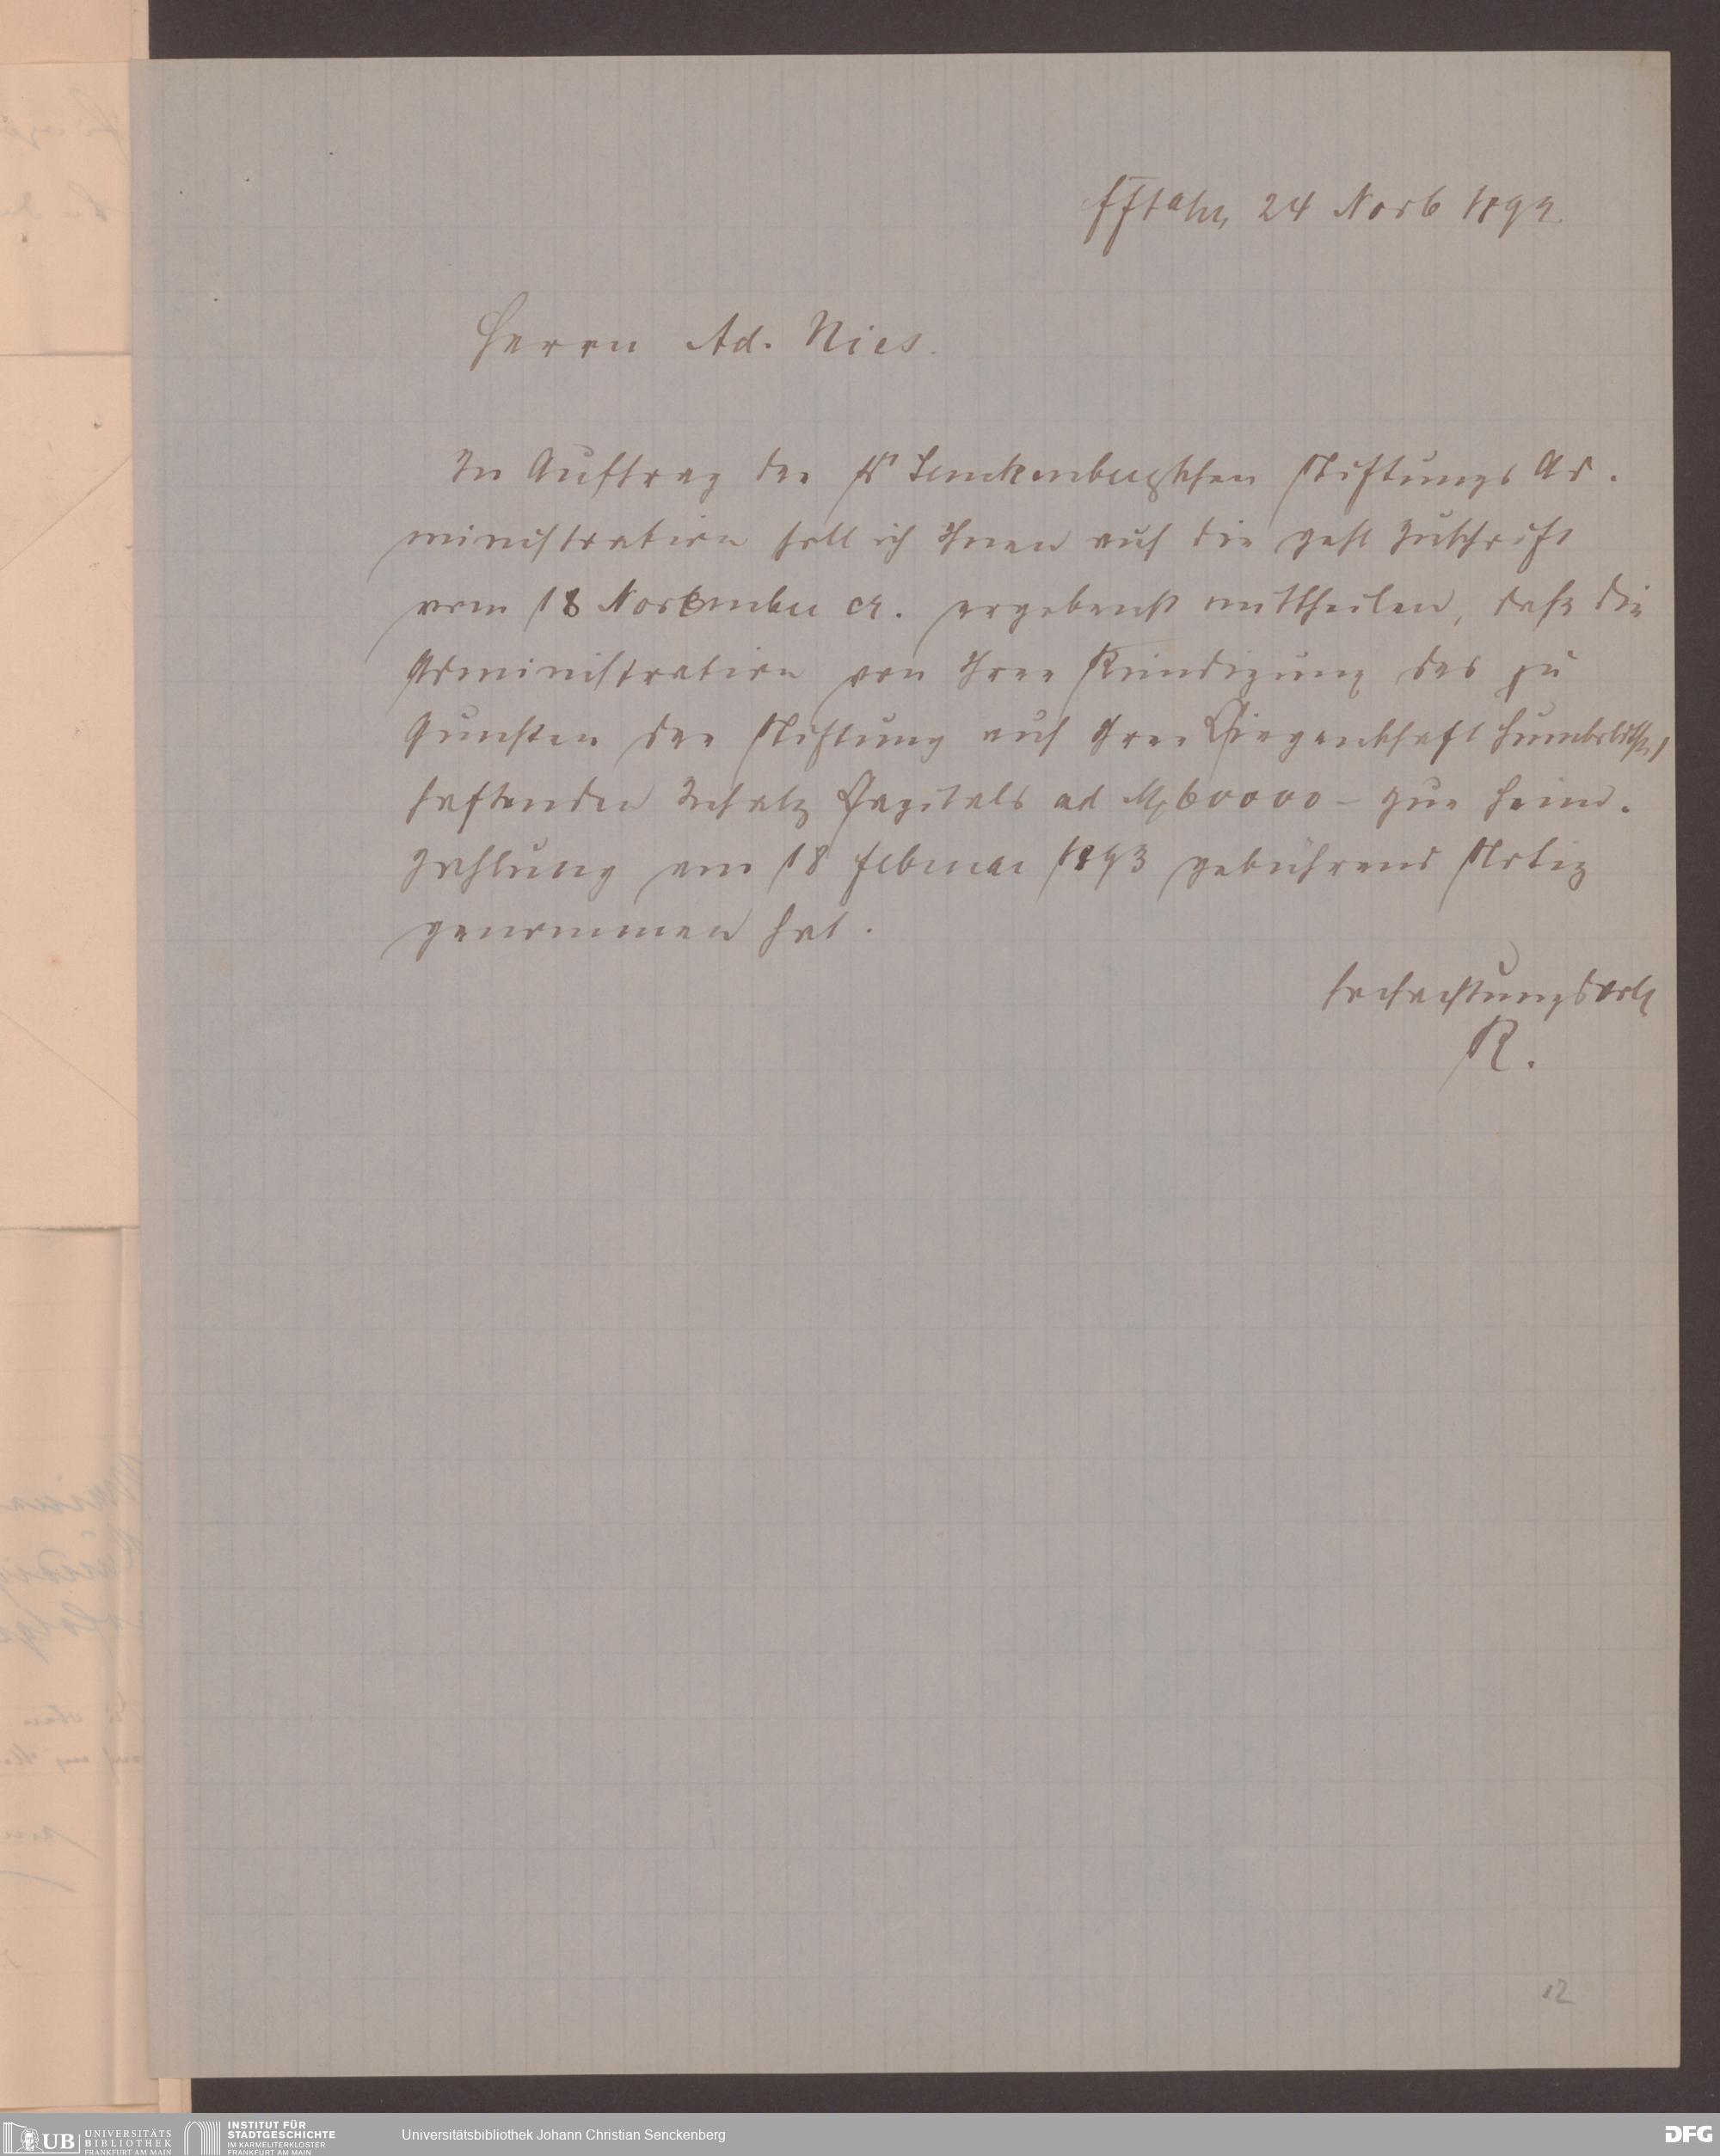 24 Novb 1892.
Herrn Ad. Nies.
Im Auftrag der Dr Senckenbergischen Stiftungs Ad-
ministration soll ich Ihnen auf die gefl Zuschrift
vom 18 November cr. ergebenst mittheilen, daß die
Administration von Ihrer Kündigung des zu
Gunsten der Stiftung auf Ihrer Liegenschaft
haftenden Insatz Capitals ad M 60000 – zur Heim-
zahlung am 18 Februar 1893 gebührend Notiz
genommen hat.
hochachtungsvoll
R.
12
UB UNIVERSITÄTS
BIBLIOTHEK
FRANKFURT AM MAIN
INSTITUT FÜR
STADTGESCHICHTE
IM KARMELITERKLOSTER
FRANKFURT AM MAIN
Universitätsbibliothek Johann Christian Senckenberg
DFG